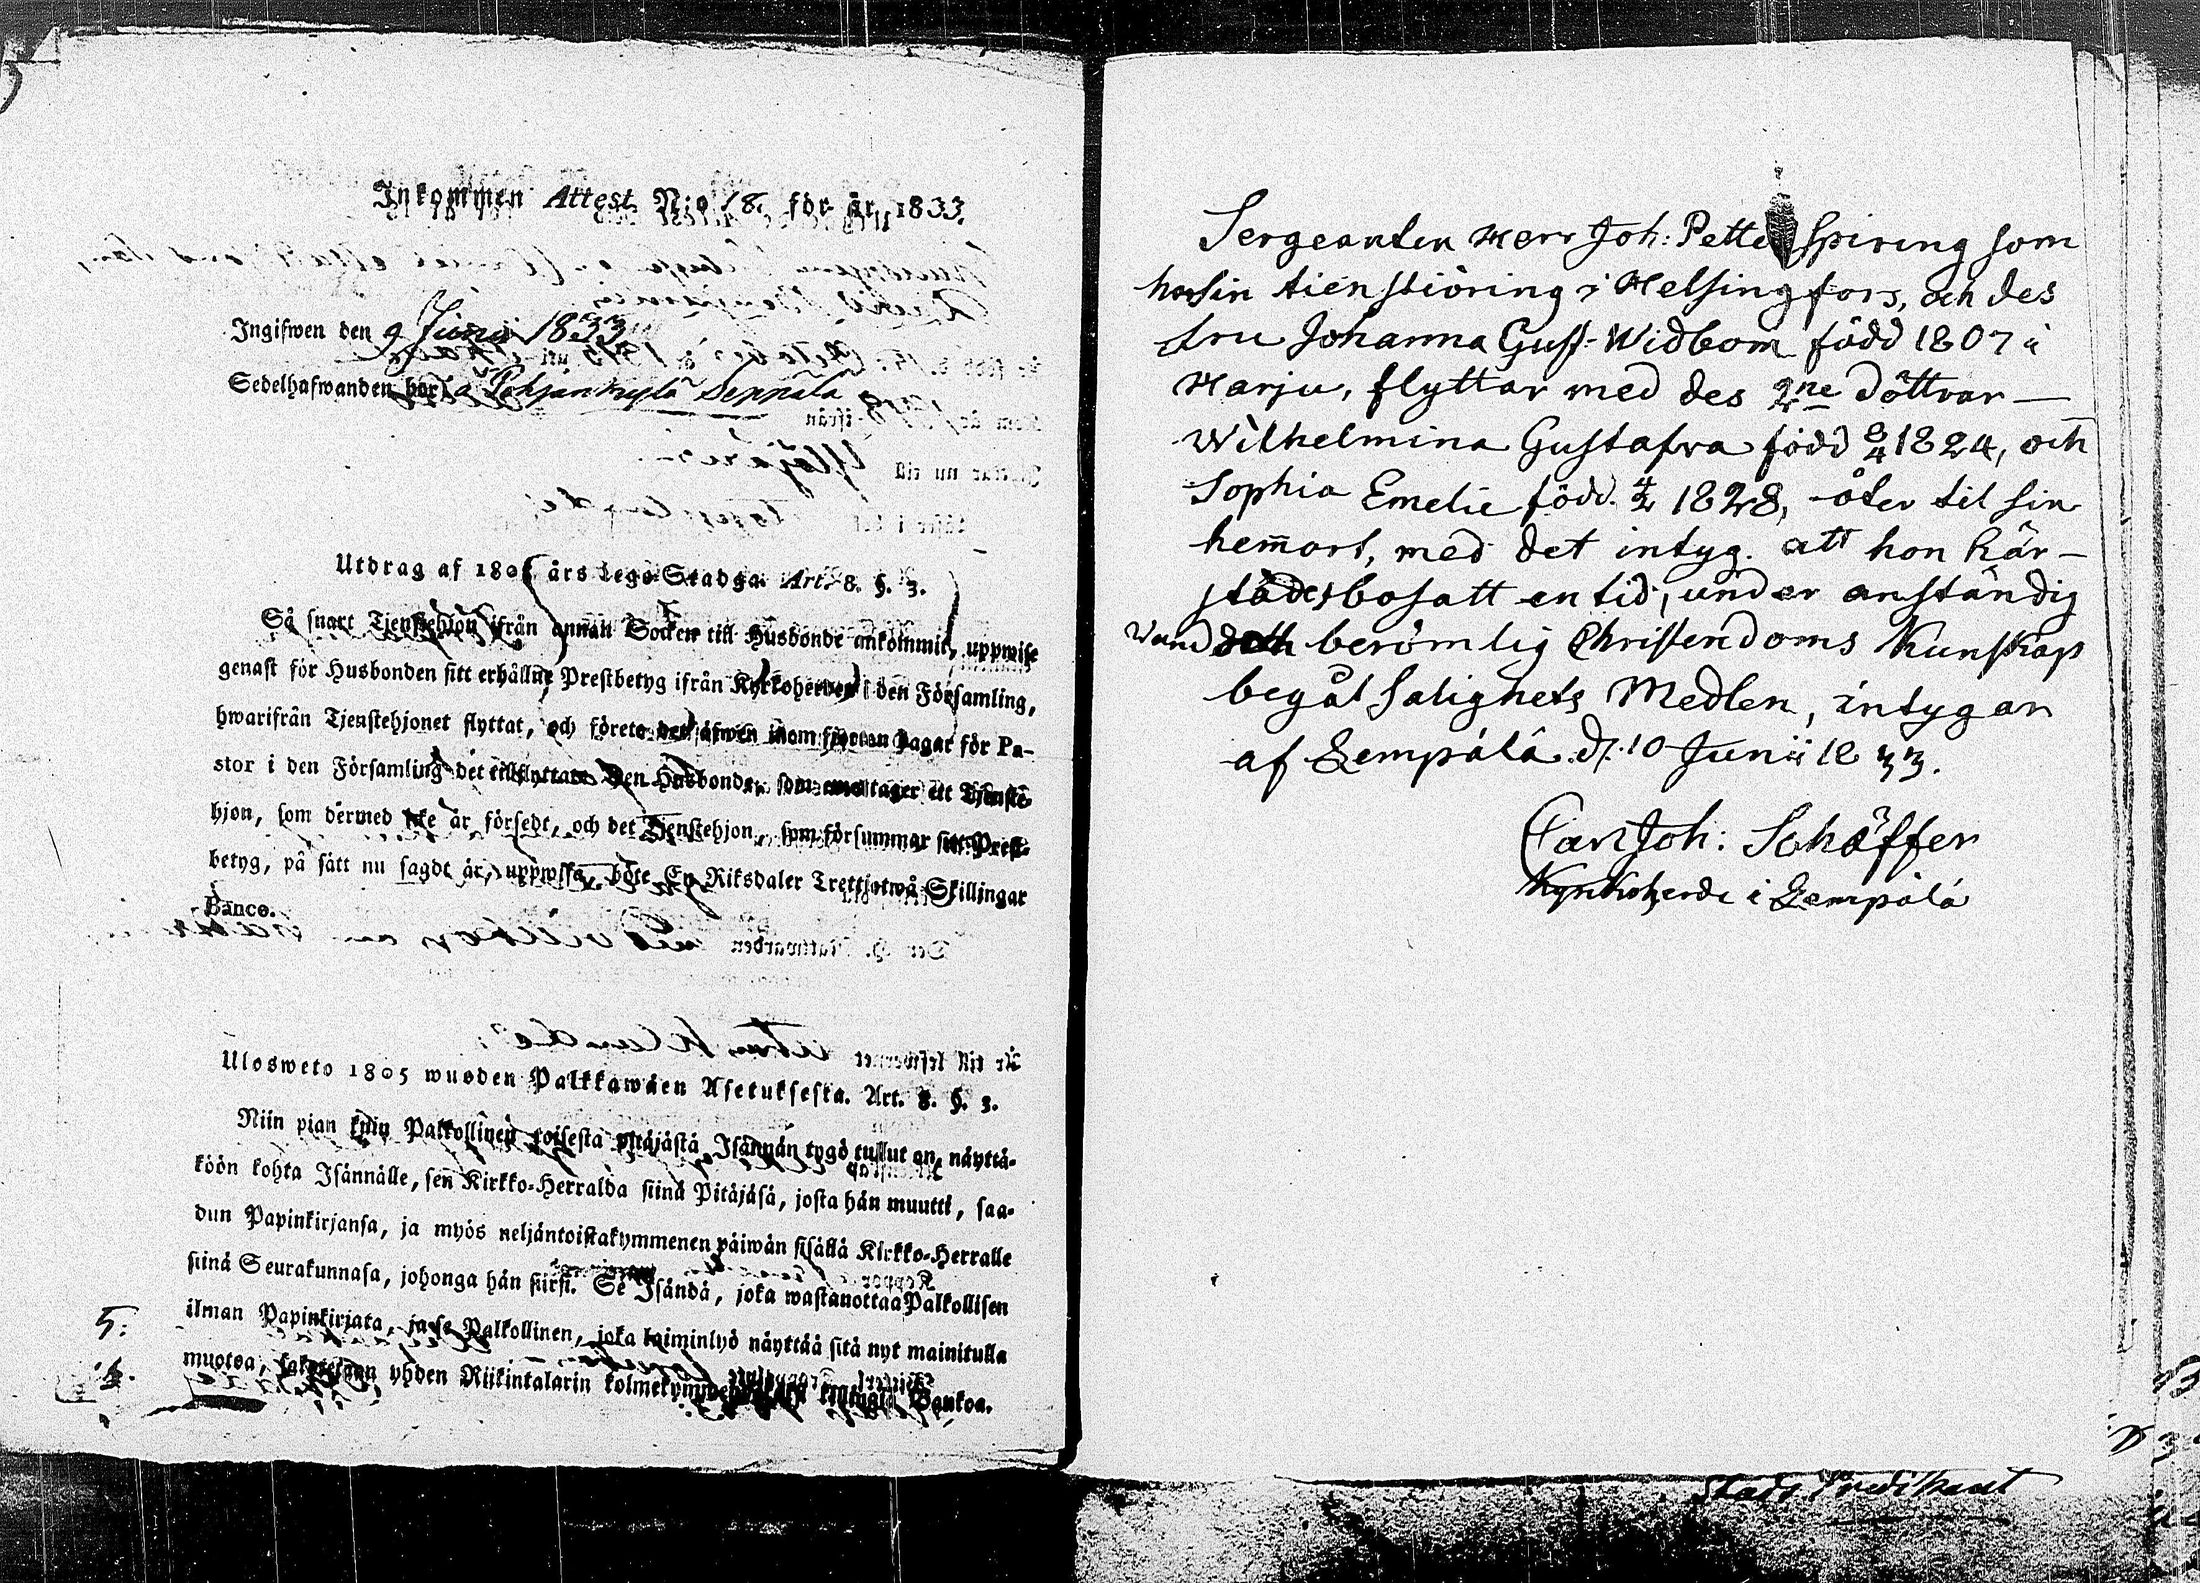 Inkommen Attest N:o 18. för år 1833.
Ingifwen den 9 Junii 1833
Sedelhafwanden bor i Pohjankylä Seppälä
Utdrag af 1805 års Lego-Stadga. Art. 8. §. 3.
Så snart Tjenstehjon ifrån annan Socken till Husbonde ankommit, uppwise
genast för Husbonden sitt erhållne Prestbetyg ifrån Kyrkoherden i den Församling,
hwarifrån Tjenstehjonet flyttat, och förete det äfwen inom fjorton dagar för Pa-
stor i den Församling det tillflyttat. Den Husbonde, som emottager ett Tjenste-
hjon, som dermed icke är försedt, och det Tjenstehjon, som försummar sitt Prest-
betyg, på sätt nu sagdt är, uppwisa, böte En Riksdaler Trettiotwå Skillingar
Banco.
Ulosweto 1805 wuoden Palkkawäen Asetuksesta. Art. 8. §. 3.
Niin pian kuin Palkollinen toisesta pitäjästä Isännän tygö tullut on, näyttä-
köön kohta Isännälle, sen Kirkko-Herralda siinä Pitäjäsä, josta hän muutti, saa-
dun Papinkirjansa, ja myös neljäntoistakymmenen päiwän sisällä Kirkko-Herralle
siinä Seurakunnasa, johonga hän siirsi. Se Isändä, joka wastanottaa Palkollisen
ilman Papinkirjata, ja se Palkollinen, joka laiminlyö näyttää sitä nyt mainitulla
muotoa, sakotetaan yhden Riikintalarin kolmekymmendä kaksi killingiä Bankoa.
5:
Sergeanten Herr Joh: Petter Spiring som
har sin tienstiöring i Helsingfors, och des
fru Johanna Gust. Widbom född 1807 i
Harju, flyttar med des 2ne döttrar —
Wilhelmina Gustafva född 8/4 1824, och
Sophia Emelie född. 4/2 1828, åter til sin
hem̄ort, med det intyg. att hon här-
städes bosatt en tid, under anständig
vand och berömlig Christendoms Kunskap
begåt Salighets Medlen, intygar
af Lempälä. d. 10 Junii 1833.
Carl Joh: Schöffer
Kyrkoherde i Lempälä
Stads Predikant